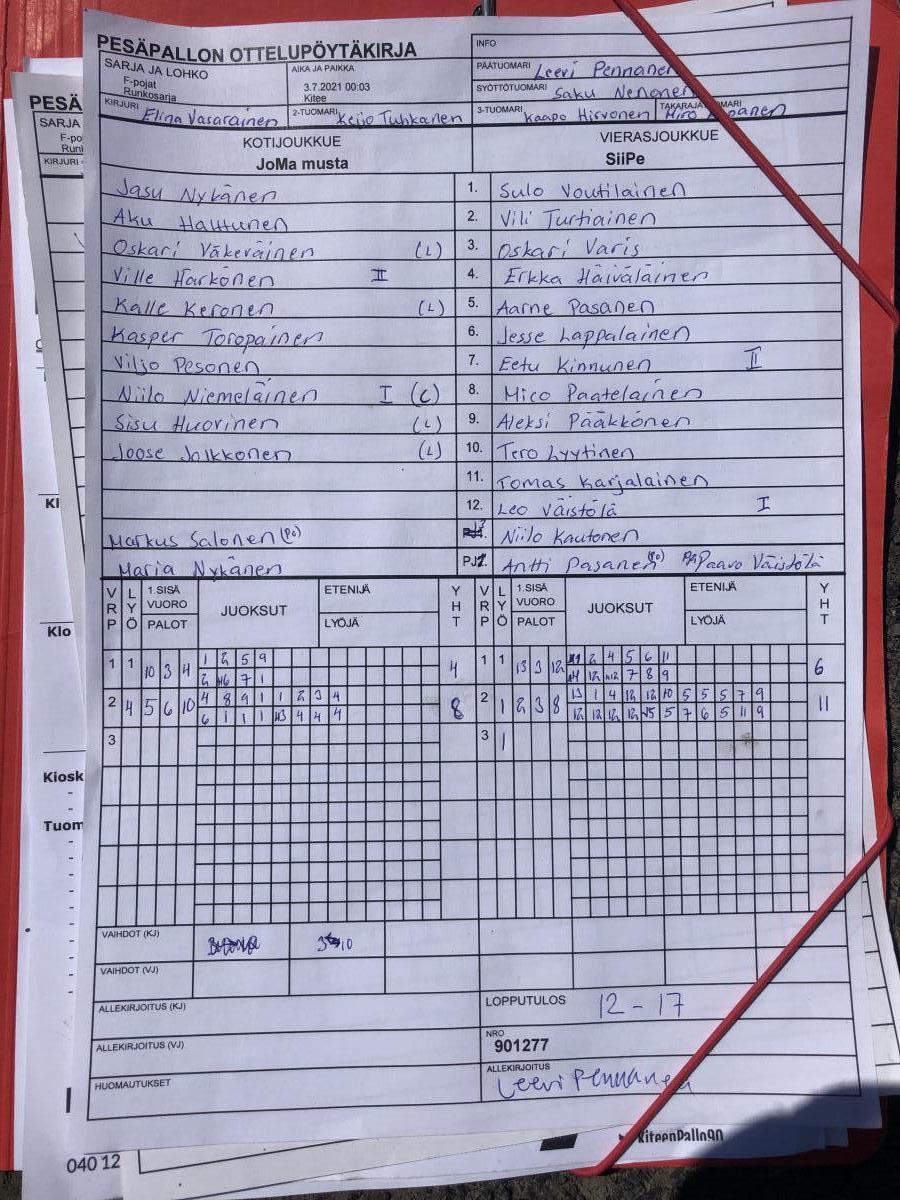 PESÄPALLON OTTELUPÖYTÄKIRJA
INFO
SARJA JA LOHKO
F-pojat
Runkosarja
AIKA JA PAIKKA
3.7.2021 00:03
Kitee
PÄÄTUOMARI Leevi Pennanen
SYÖTTÖTUOMARI Saku Nenonen
KIRJURI Elina Vasarainen
2-TUOMARI Keijo Tuhkanen
3-TUOMARI Kaapo Hirvonen
KOTIJOUKKUE
JoMa musta
VIERASJOUKKUE
SiiPe
Jasu Nykänen 1. Sulo Voutilainen
Aku Halttunen 2. Vili Turtiainen
Oskari Väkeväinen (L) 3. Oskari Varis
Ville Härkönen II 4. Erkka Häiväläinen
Kalle Keronen (L) 5. Aarne Pasanen
Kasper Toropainen 6. Jesse Lappalainen
Viljo Pesonen 7. Eetu Kinnunen II
Niilo Niemeläinen I (C) 8. Mico Paatelainen
Sisu Huovinen (L) 9. Aleksi Pääkkönen
Joose Jolkkonen (L) 10. Tero Lyytinen
11. Tomas Karjalainen
12. Leo Väistölä I
Markus Salonen (PO) Niilo Kautonen
Maria Nykänen Antti Pasanen Paavo Väistölä
VRP LYÖ 1.SISÄ VUORO PALOT JUOKSUT ETENIJÄ LYÖJÄ YHT
VRP LYÖ 1.SISÄ VUORO PALOT JUOKSUT ETENIJÄ LYÖJÄ YHT
1 1 10 3 4 1 2 5 9 4
2 7 1
1 1 13 3 12 2 4 5 6 11 6
12 7 8 9
2 4 5 6 10 4 8 9 1 1 2 3 4 8
6 1 1 1 4 4 4
2 1 2 3 8 13 1 4 12 12 10 5 5 5 7 9 11
12 12 12 12 5 7 6 5 11 9
3
3 1
VAIHDOT (KJ)
VAIHDOT (VJ)
ALLEKIRJOITUS (KJ)
ALLEKIRJOITUS (VJ)
HUOMAUTUKSET
LOPPUTULOS 12 - 17
NRO
901277
ALLEKIRJOITUS
Leevi Pennanen
PESÄ
SARJA
F-po
Runk
KIRJURI
Kl
Klo
Kiosk
Tuom
040 12
KiteenPallo90